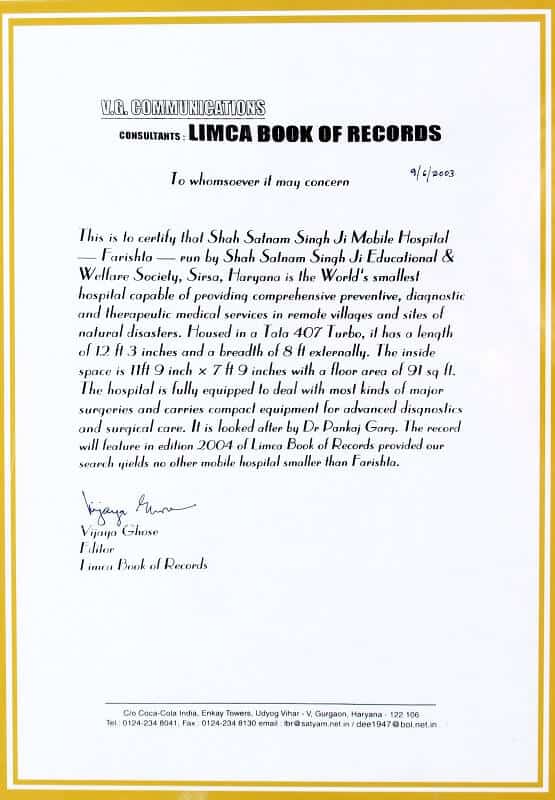 V.G. COMMUNICATIONS
CONSULTANTS : LIMCA BOOK OF RECORDS
9/6/2003
To whomsoever it may concern
This is to certify that Shah Satnam Singh Ji Mobile Hospital
— Farishta — run by Shah Satnam Singh Ji Educational &
Welfare Society, Sirsa, Haryana is the World's smallest
hospital capable of providing comprehensive preventive, diagnostic
and therapeutic medical services in remote villages and sites of
natural disasters. Housed in a Tata 407 Turbo, it has a length
of 12 ft 3 inches and a breadth of 8 ft externally. The inside
space is 11ft 9 inch × 7 ft 9 inches with a floor area of 91 sq ft.
The hospital is fully equipped to deal with most kinds of major
surgeries and carries compact equipment for advanced disgnostics
and surgical care. It is looked after by Dr Pankaj Garg. The record
will feature in edition 2004 of Limca Book of Records provided our
search yields no other mobile hospital smaller than Farishta.
Vijaya Ghose
Vijaya Ghose
Editor
Limca Book of Records
C/o Coca-Cola India, Enkay Towers, Udyog Vihar - V, Gurgaon, Haryana - 122 106
Tel : 0124-234 8041, Fax : 0124-234 8130 email : lbr@satyam.net.in / dee1947@bol.net.in